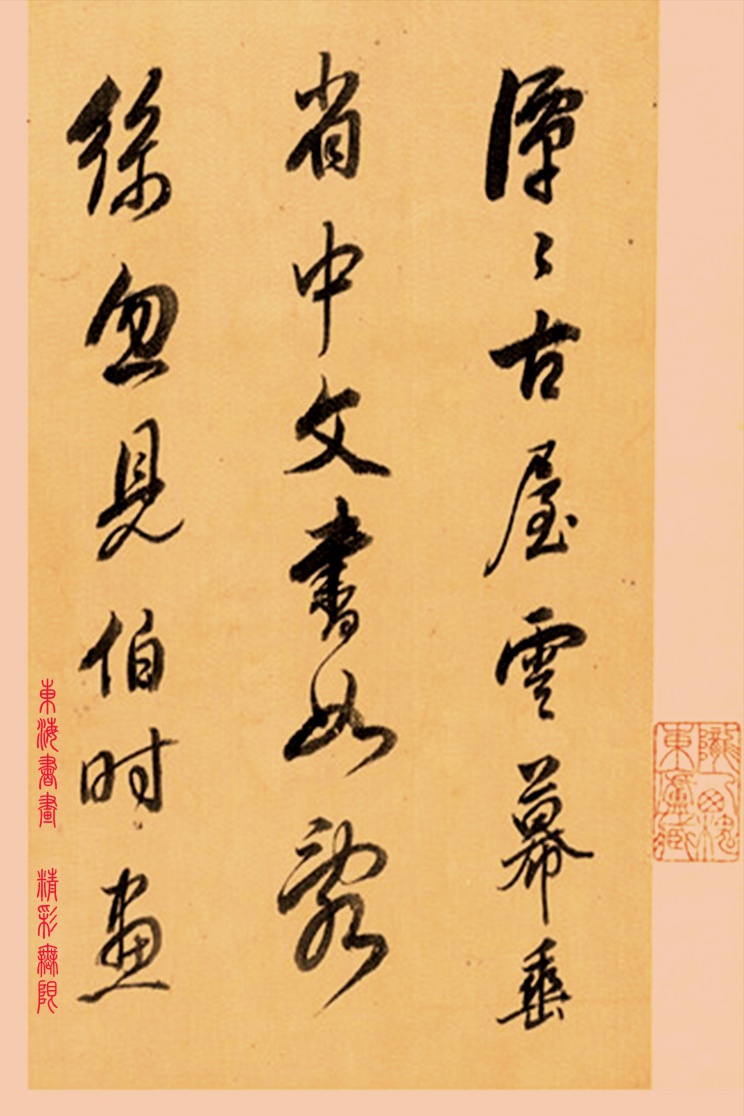 潭〻古屋雲幕垂
省中文書如亂
絲忽見伯時畫
東海書畫 精彩無限